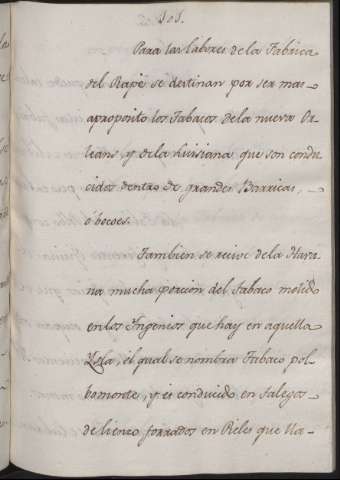 101.
Para las labores de la Fabrica
del Rapè se destinan por ser mas
aproposito los Tabacos de la nueva Or
leans, y de la Luisiana que son condu
cidos dentro de grandes Barricas,
ò bocoes.
Tambien se recive de la Hava
na mucha porcion del Tabaco molido
en los Ingenios que hay en aquella
Ysla, el qual se nombra Tabaco pol
bamonte, y es conducido en talegos
de lienzo forrados en Pieles que lla-